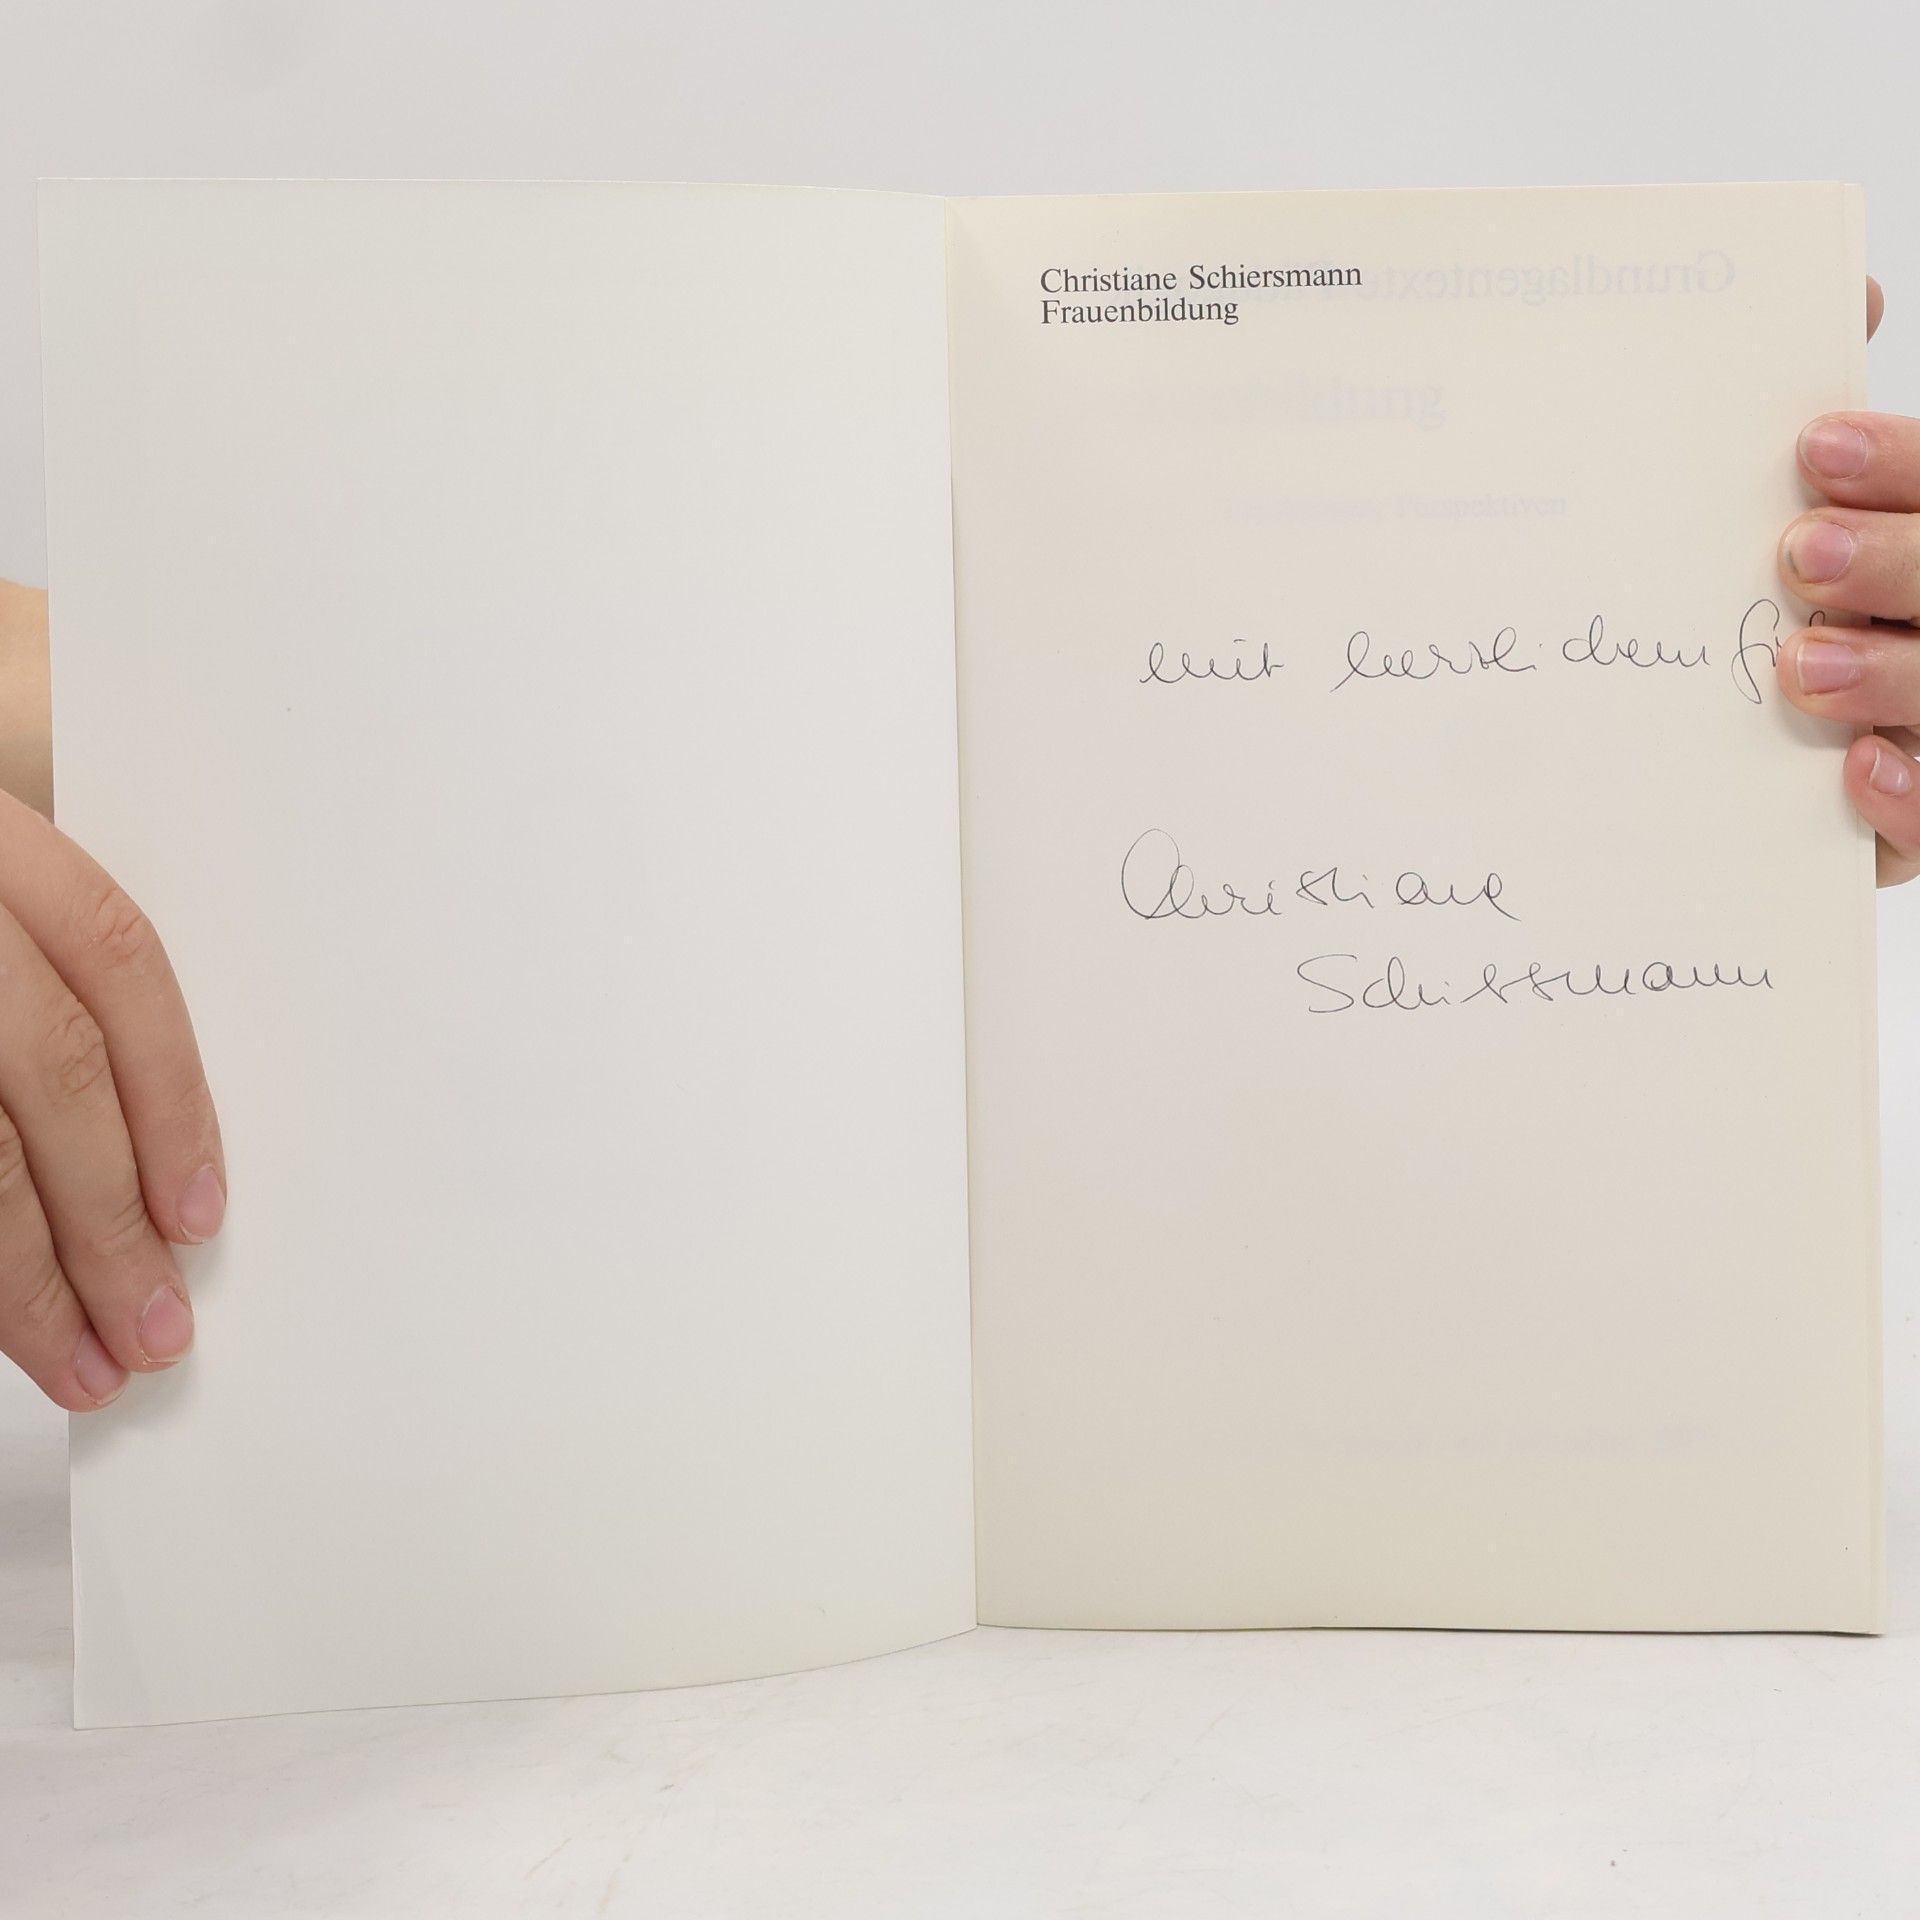 Christiane Schiersmann
Frauenbildung
mit herzlichem
Christiane
Schiersmann